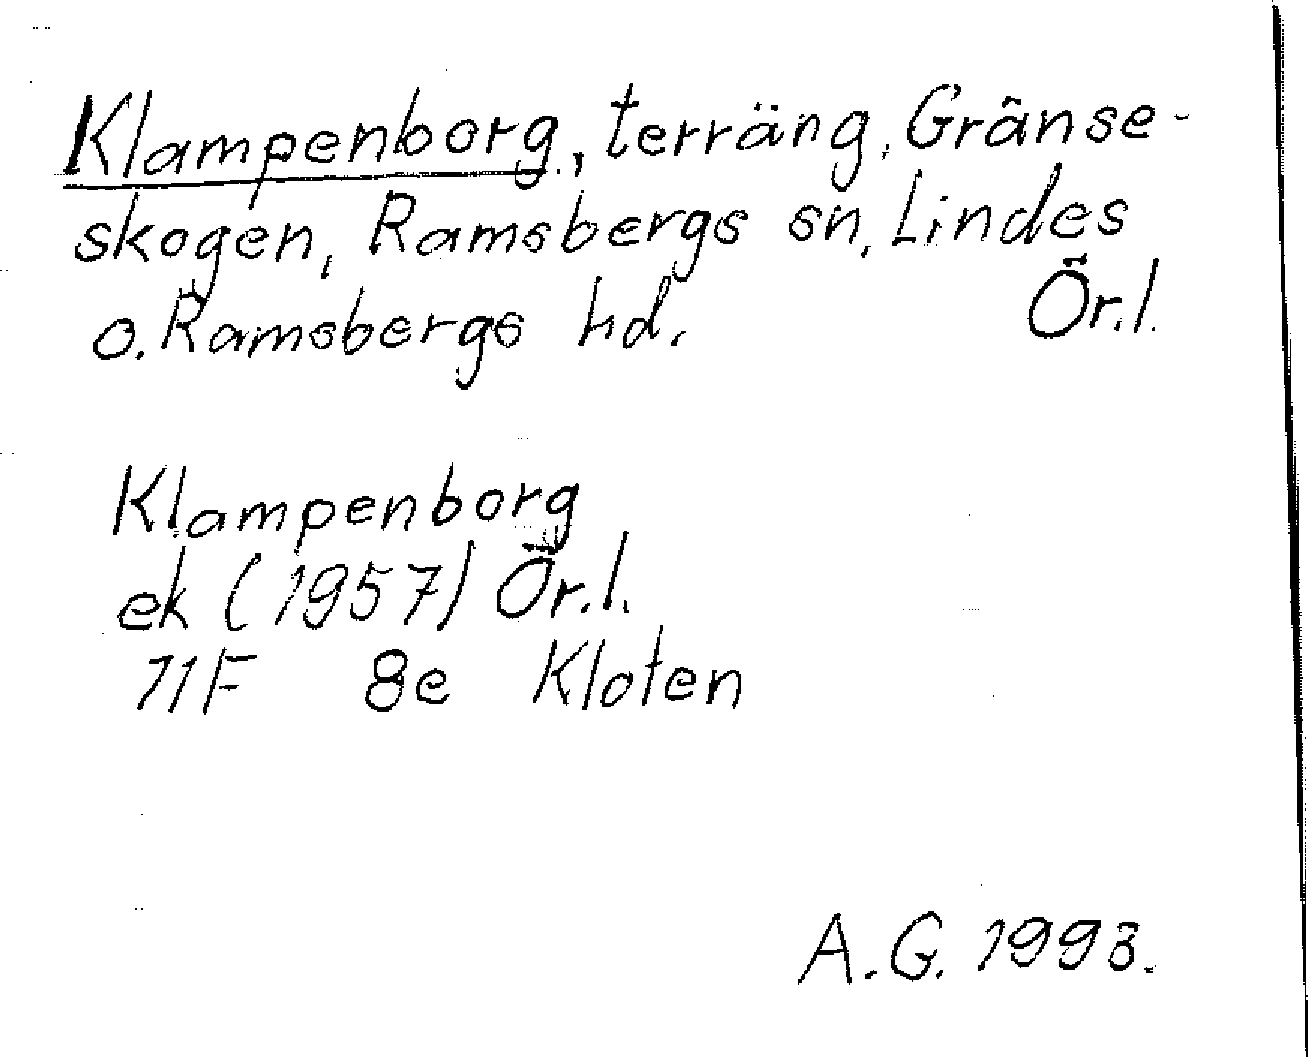 Klampenborg, terräng, Gränse-
skogen, Ramsbergs sn, Lindes
o. Ramsbergs hd. Ör.l.
Klampenborg
ek (1957) Ör.l.
11F 8e Kloten
A.G. 1993.